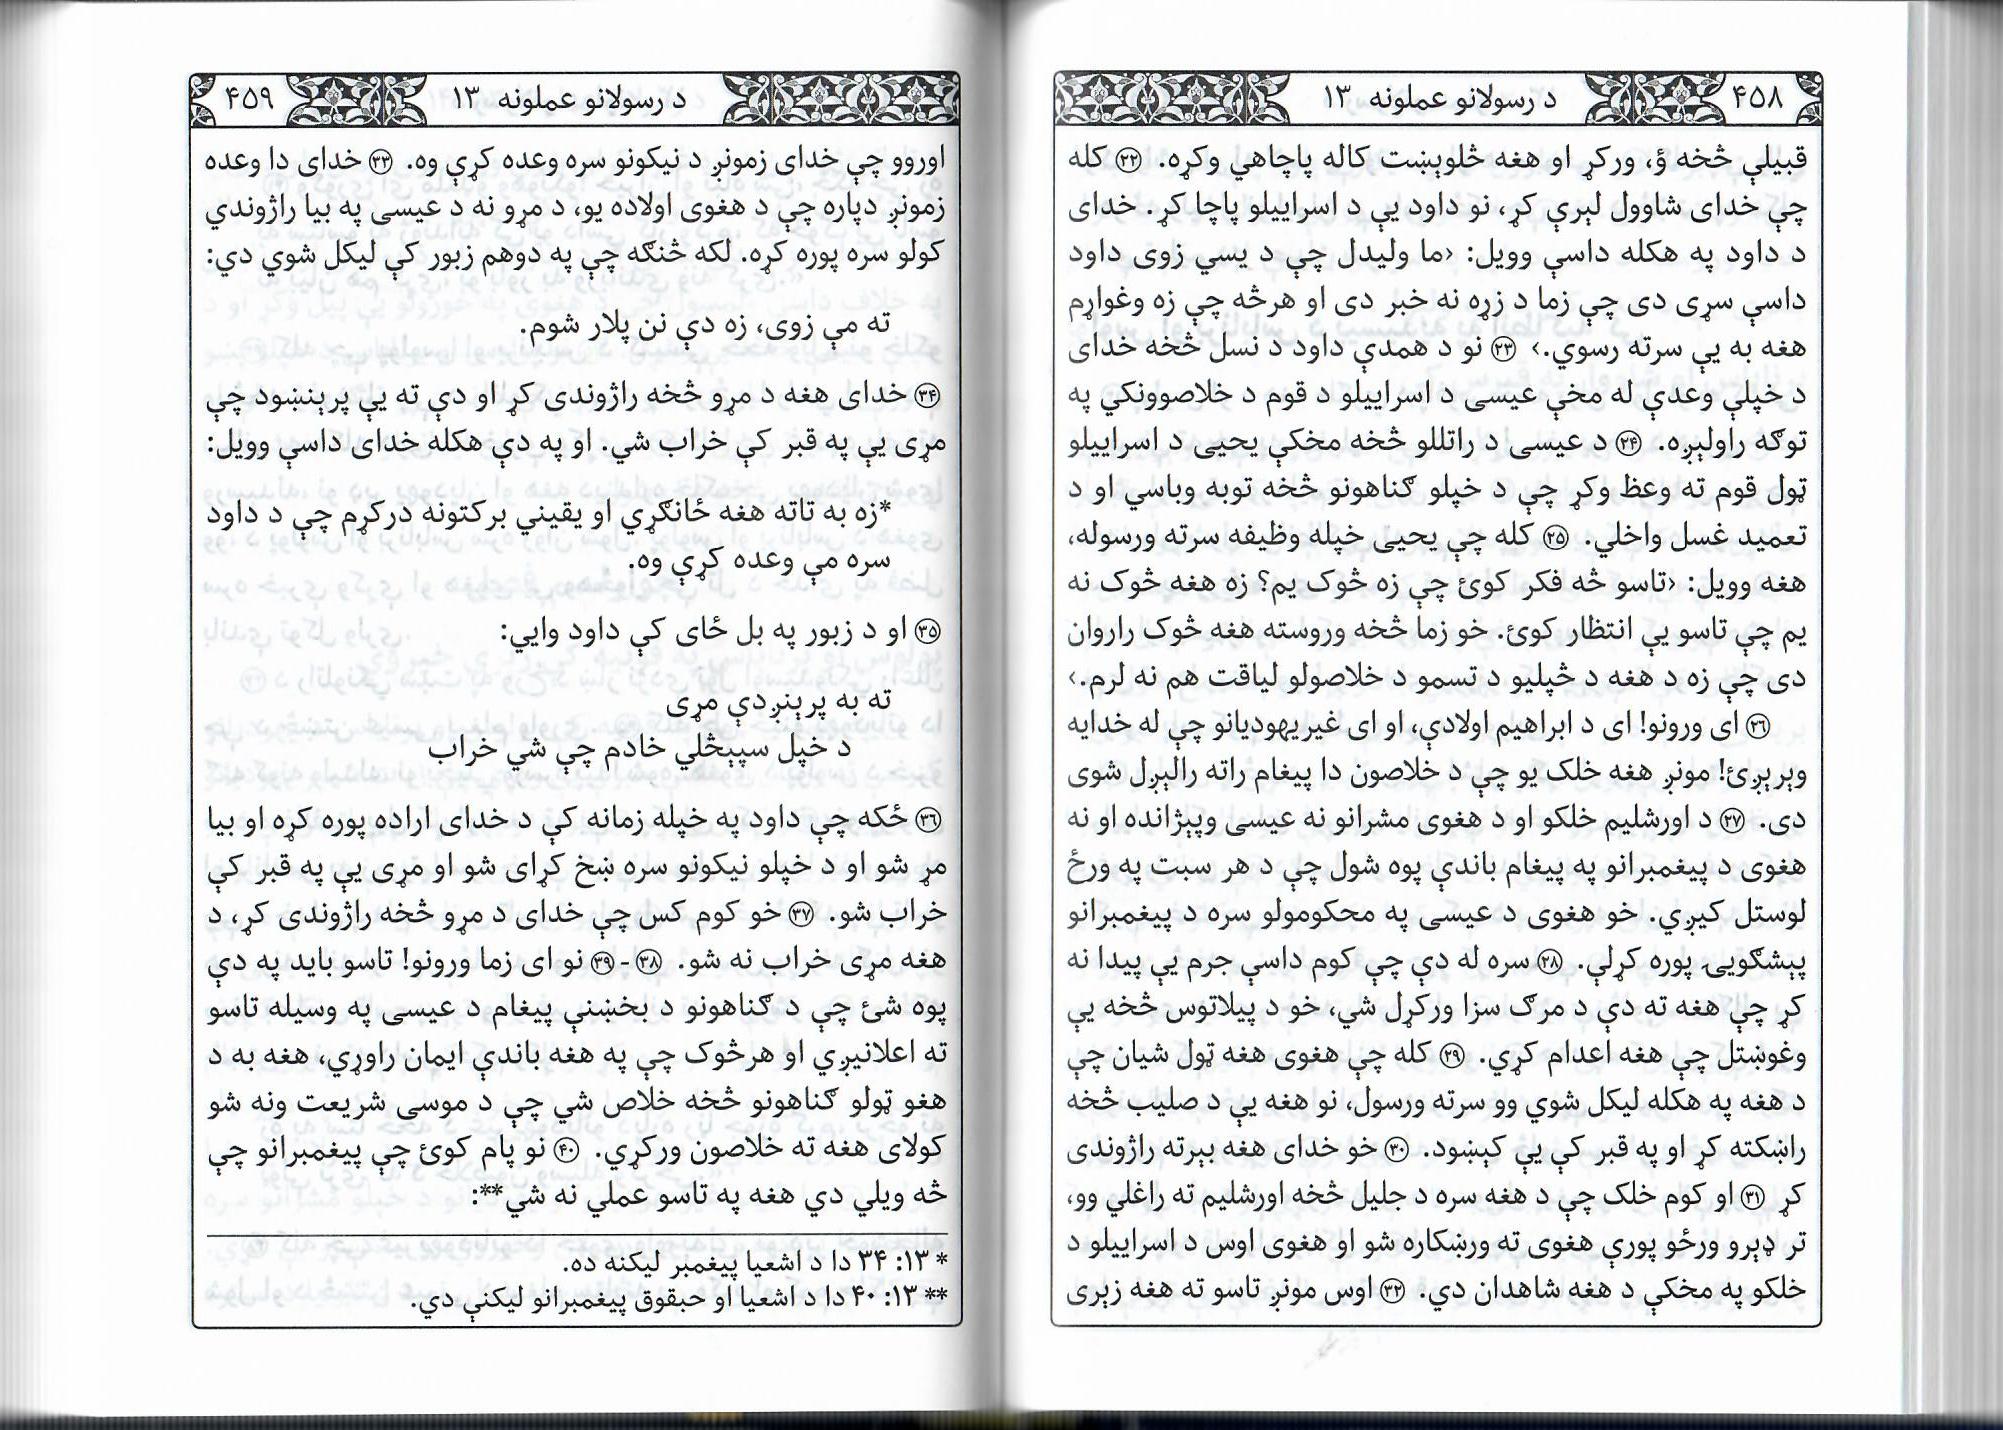 ۴۵۸
د رسولانو عملونه ۱۳
قبیلې څخه ؤ، ورکړ او هغه څلوېښت کاله پاچاهي وکړه. ۲۲ کله
چې خدای شاوول لېرې کړ، نو داود یې د اسراییلو پاچا کړ. خدای
د داود په هکله داسې وویل: ‹ما ولیدل چې د یسي زوی داود
داسې سړی دی چې زما د زړه نه خبر دی او هرڅه چې زه وغواړم
هغه به یې سرته رسوي.› ۲۳ نو د همدې داود د نسل څخه خدای
د خپلې وعدې له مخې عیسی د اسراییلو د قوم د خلاصوونکي په
توګه راولېږه. ۲۴ د عیسی د راتللو څخه مخکې یحیی د اسراییلو
ټول قوم ته وعظ وکړ چې د خپلو ګناهونو څخه توبه وباسي او د
تعمید غسل واخلي. ۲۵ کله چې یحیی خپله وظیفه سرته ورسوله،
هغه وویل: ‹تاسو څه فکر کوئ چې زه څوک یم؟ زه هغه څوک نه
یم چې تاسو یې انتظار کوئ. خو زما څخه وروسته هغه څوک راروان
دی چې زه د هغه د څپلیو د تسمو د خلاصولو لیاقت هم نه لرم.›
۲۶ ای ورونو! ای د ابراهیم اولادې، او ای غیریهودیانو چې له خدایه
وېرېږئ! مونږ هغه خلک یو چې د خلاصون دا پیغام راته رالېږل شوی
دی. ۲۷ د اورشلیم خلکو او د هغوی مشرانو نه عیسی وپېژانده او نه
هغوی د پیغمبرانو په پیغام باندې پوه شول چې د هر سبت په ورځ
لوستل کیږي. خو هغوی د عیسی په محکومولو سره د پیغمبرانو
پېشګویۍ پوره کړلې. ۲۸ سره له دې چې کوم داسې جرم یې پیدا نه
کړ چې هغه ته دې د مرګ سزا ورکړل شي، خو د پیلاتوس څخه یې
وغوښتل چې هغه اعدام کړي. ۲۹ کله چې هغوی هغه ټول شیان چې
د هغه په هکله لیکل شوي وو سرته ورسول، نو هغه یې د صلیب څخه
راښکته کړ او په قبر کې یې کېښود. ۳۰ خو خدای هغه بېرته راژوندی
کړ ۳۱ او کوم خلک چې د هغه سره د جلیل څخه اورشلیم ته راغلي وو،
تر ډېرو ورځو پورې هغوی ته ورښکاره شو او هغوی اوس د اسراییلو د
خلکو په مخکې د هغه شاهدان دي. ۳۲ اوس مونږ تاسو ته هغه زېری
د رسولانو عملونه ۱۳
۴۵۹
اوروو چې خدای زمونږ د نیکونو سره وعده کړې وه. ۳۳ خدای دا وعده
زمونږ دپاره چې د هغوی اولاده یو، د مړو نه د عیسی په بیا راژوندي
کولو سره پوره کړه. لکه څنګه چې په دوهم زبور کې لیکل شوي دي:
ته مې زوی، زه دې نن پلار شوم.
۳۴ خدای هغه د مړو څخه راژوندی کړ او دې ته یې پرېنښود چې
مړی یې په قبر کې خراب شي. او په دې هکله خدای داسې وویل:
*زه به تاته هغه ځانګړي او یقیني برکتونه درکړم چې د داود
سره مې وعده کړې وه.
۳۵ او د زبور په بل ځای کې داود وایي:
ته به پرېنږدې مړی
د خپل سپېڅلي خادم چې شي خراب
۳۶ ځکه چې داود په خپله زمانه کې د خدای اراده پوره کړه او بیا
مړ شو او د خپلو نیکونو سره ښخ کړای شو او مړی یې په قبر کې
خراب شو. ۳۷ خو کوم کس چې خدای د مړو څخه راژوندی کړ، د
هغه مړی خراب نه شو. ۳۸-۳۹ نو ای زما ورونو! تاسو باید په دې
پوه شئ چې د ګناهونو د بخښنې پیغام د عیسی په وسیله تاسو
ته اعلانیږي او هرڅوک چې په هغه باندې ایمان راوړي، هغه به د
هغو ټولو ګناهونو څخه خلاص شي چې د موسی شریعت ونه شو
کولای هغه ته خلاصون ورکړي. ۴۰ نو پام کوئ چې پیغمبرانو چې
څه ویلي دي هغه په تاسو عملي نه شي**:
* ۱۳: ۳۴ دا د اشعیا پیغمبر لیکنه ده.
** ۱۳: ۴۰ دا د اشعیا او حبقوق پیغمبرانو لیکنې دي.